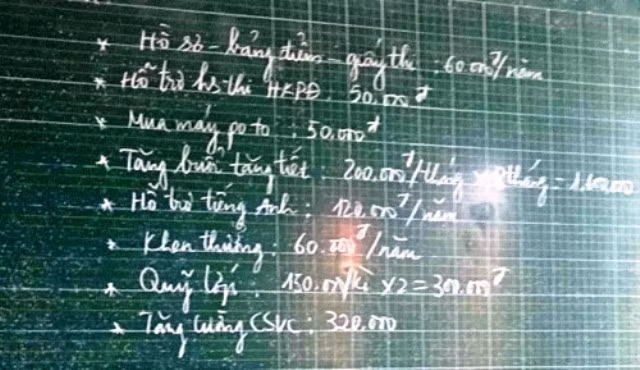 * Hồ sơ - bảng điểm - giấy thi : 60.000đ/năm
* Hỗ trợ hs thi HKPĐ : 50.000đ
* Mua máy poto : 50.000đ
* Tăng buổi tăng tiết : 200.000đ/tháng x tháng =
* Hỗ trợ tiếng Anh : 120.000đ/năm
* Khen thưởng : 60.000đ/năm
* Quỹ lớp : 150.000/kì x2 = 300.000đ
* Tăng cường CSVC : 320.000